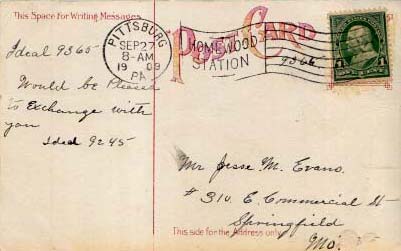 This Space For Writing Messages
POST CARD
PITTSBURG
SEP 27
8-AM
19 09
PA.
HOMEWOOD
STATION
1
1
Ideal 9365
Would be Please
to Exchange with
you
Ideal 9245
9366
Mr Jesse M. Evans.
#310. E. Commercial St-
Springfield
Mo.
This side for the Address only